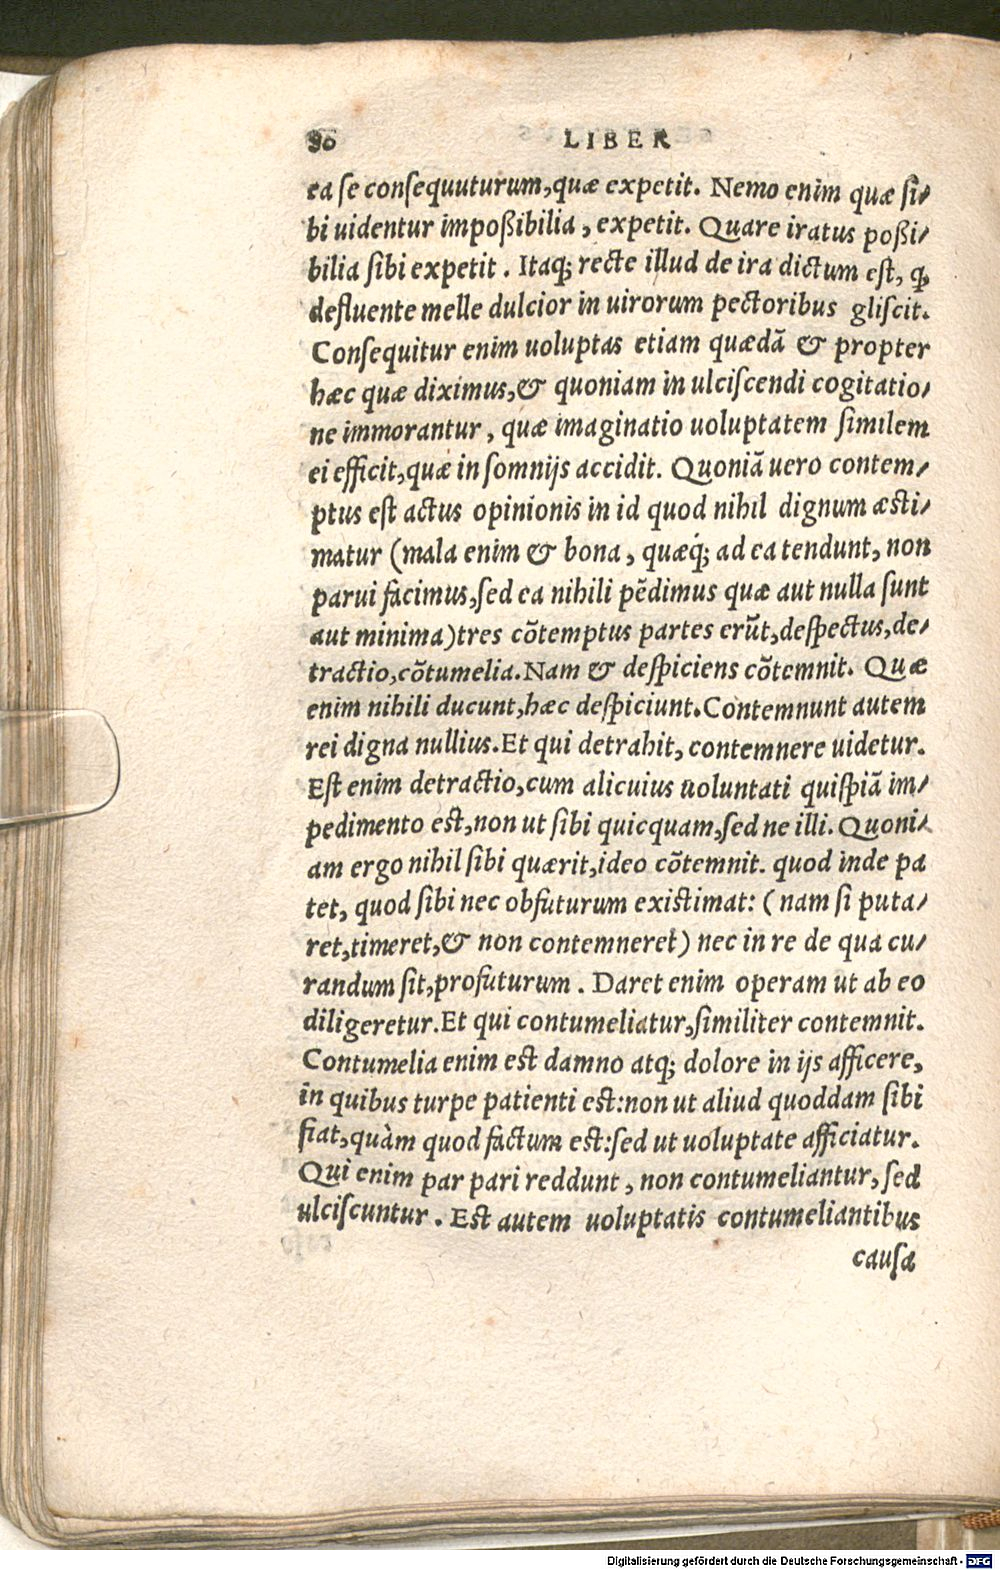 90 LIBER
ea se consequuturum, quæ expetit. Nemo enim quæ si⸗
bi uidentur impoßibilia, expetit. Quare iratus poßi⸗
bilia sibi expetit. Itaq; recte illud de ira dictum est, ꝙ
defluente melle dulcior in uirorum pectoribus gliscit.
Consequitur enim uoluptas etiam quædã & propter
hæc quæ diximus, & quoniam in ulciscendi cogitatio⸗
ne immorantur, quæ imaginatio uoluptatem similem
ei efficit, quæ in somnijs accidit. Quoniã uero contem⸗
ptus est actus opinionis in id quod nihil dignum æsti⸗
matur (mala enim & bona, quæq́; ad ea tendunt, non
parui facimus, sed ea nihili pẽdimus quæ aut nulla sunt
aut minima) tres cõtemptus partes erũt, despectus, de⸗
tractio, cõtumelia. Nam & despiciens cõtemnit. Quæ
enim nihili ducunt, hæc despiciunt. Contemnunt autem
rei digna nullius. Et qui detrahit, contemnere uidetur.
Est enim detractio, cum alicuius uoluntati quispiã im⸗
pedimento est, non ut sibi quicquam, sed ne illi. Quoni⸗
am ergo nihil sibi quærit, ideo cõtemnit. quod inde pa
tet, quod sibi nec obfuturum existimat: (nam si puta⸗
ret, timeret, & non contemneret) nec in re de qua cu⸗
randum sit, profuturum. Daret enim operam ut ab eo
diligeretur. Et qui contumeliatur, similiter contemnit.
Contumelia enim est damno atq; dolore in ijs afficere,
in quibus turpe patienti est: non ut aliud quoddam sibi
fiat, quàm quod factum est: sed ut uoluptate afficiatur.
Qui enim par pari reddunt, non contumeliantur, sed
ulciscuntur. Est autem uoluptatis contumeliantibus
causa
Digitalisierung gefördert durch die Deutsche Forschungsgemeinschaft - DFG